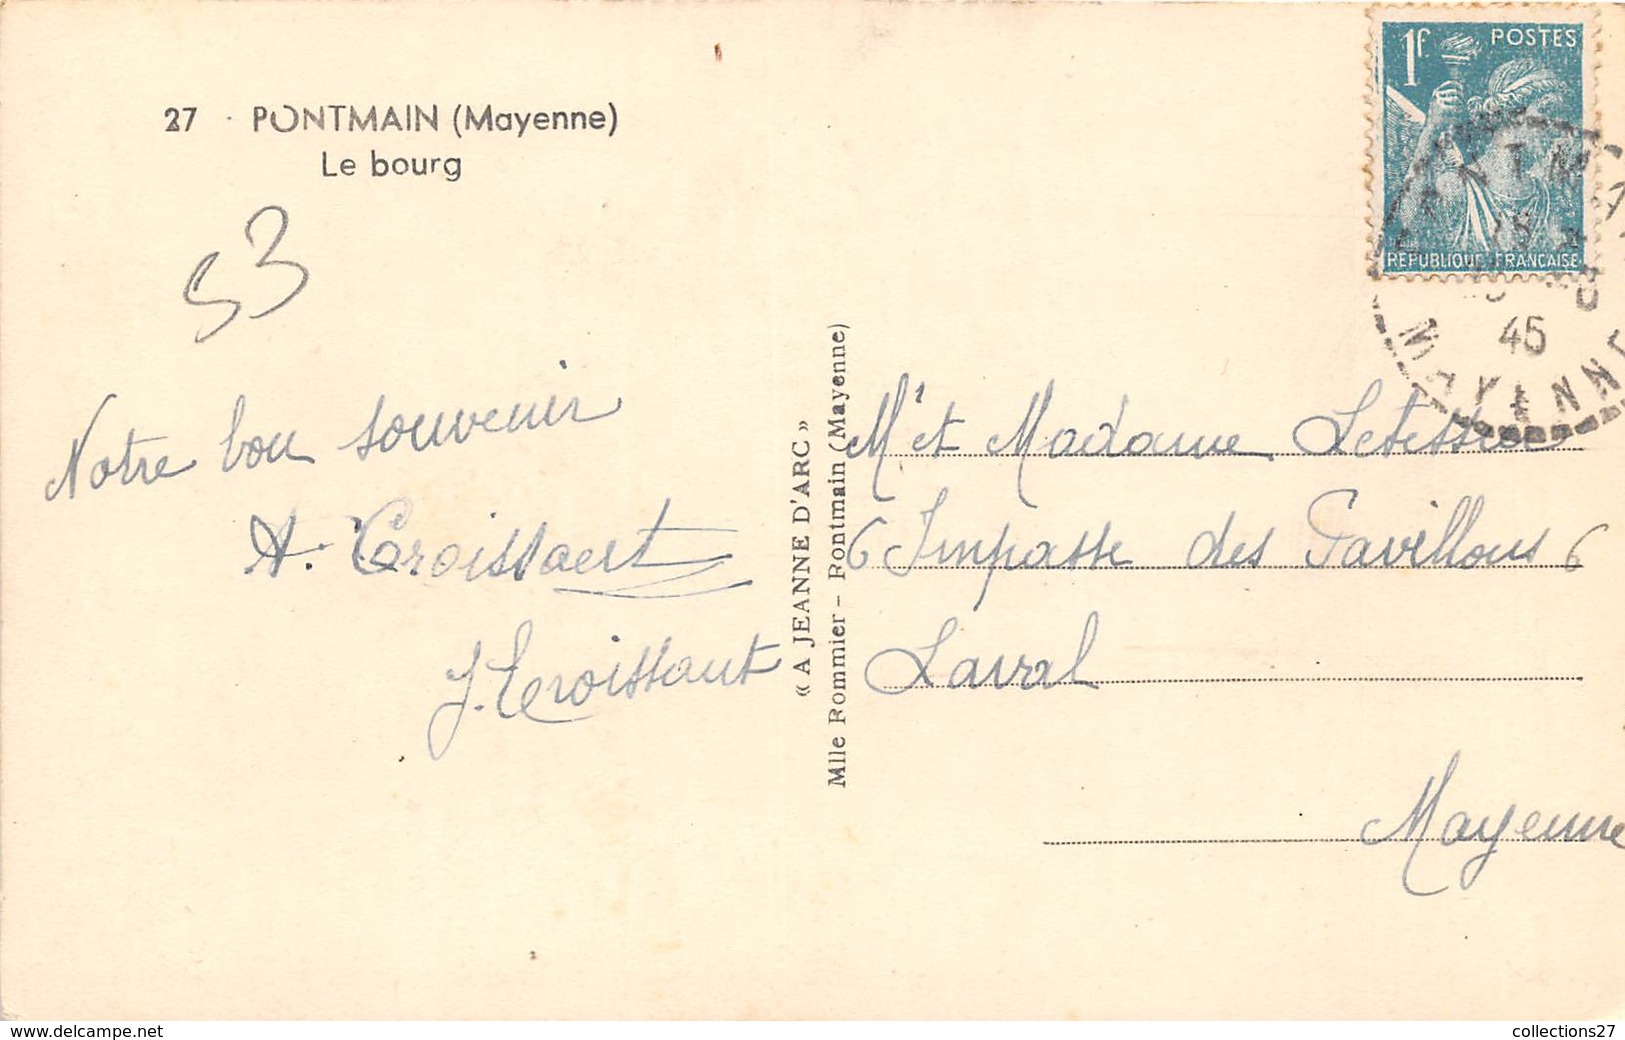 27 · PONTMAIN (Mayenne)
Le bourg
53
Notre bon souvenir
A. Croissant
J. Croissant
« A JEANNE D'ARC »
Mlle Rommier – Pontmain (Mayenne)
1F POSTES
REPUBLIQUE FRANÇAISE
45
MAYENNE
Mr et Madame Letessier
6 Impasse des Pavillons 6
Laval
Mayenne
www.delcampe.net
collections27